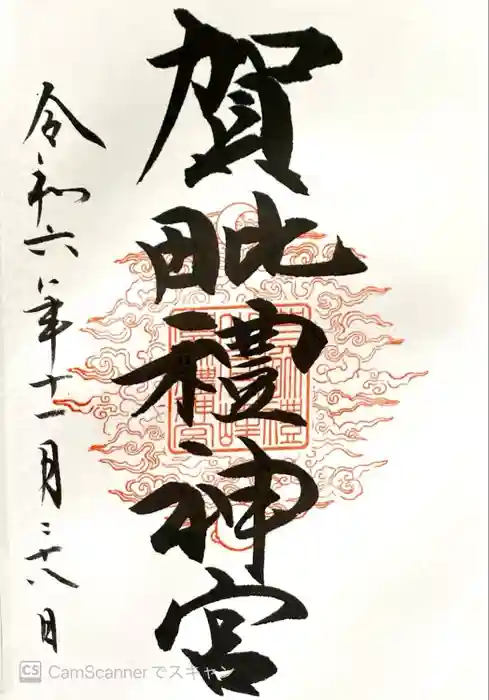 賀毗禮神宮
令和六年十一月二十八日
CS CamScanner でスキャン